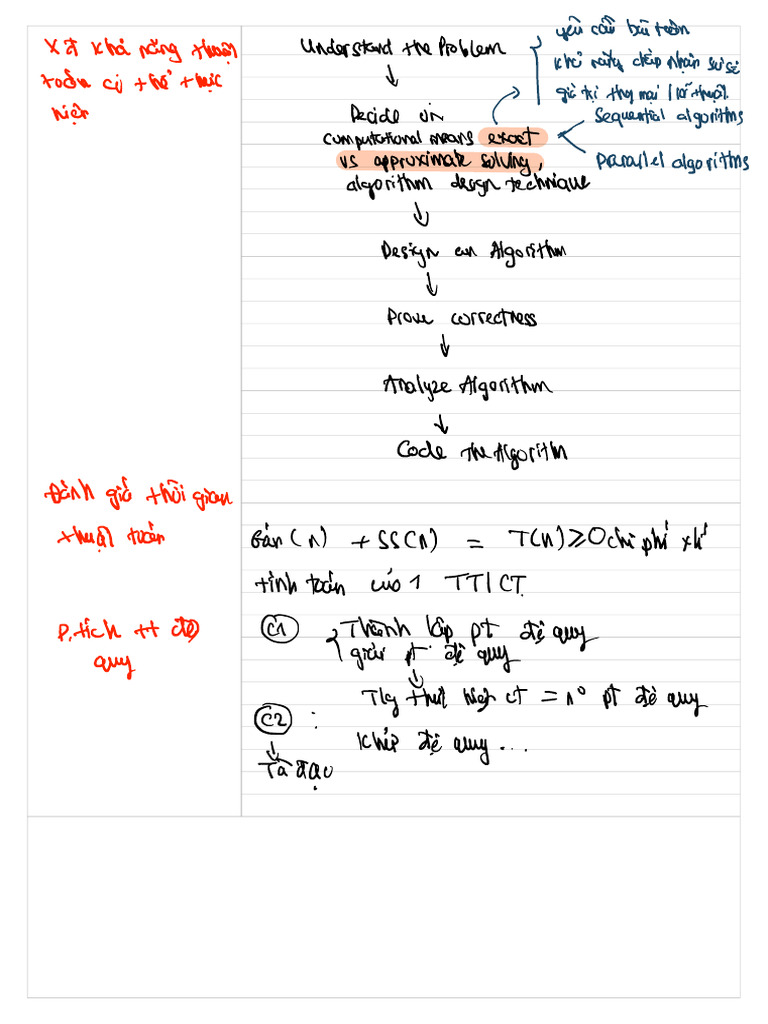 Xét khả năng thuật
toán có thể thực
hiện
Understand the Problem
yêu cầu bài toán
khả năng chấp nhận sai số
giá trị thg mại / kĩ thuật
Decide on
computational means exact
vs approximate solving,
algorithm design technique
Sequential algorithms
Parallel algorithms
Design an Algorithm
Prove correctness
Analyze Algorithm
Code the Algorithm
Đánh giá thời gian
thuật toán
Gán(n) + SS(n) = T(n) ≥ 0 chi phí
tính toán của 1 TT/CT
P.tích tt đệ
quy
C1
Thành lập pt đệ quy
giải pt đệ quy
Tg thực hiện ct = n° pt đệ quy
C2 :
Khử đệ quy ...